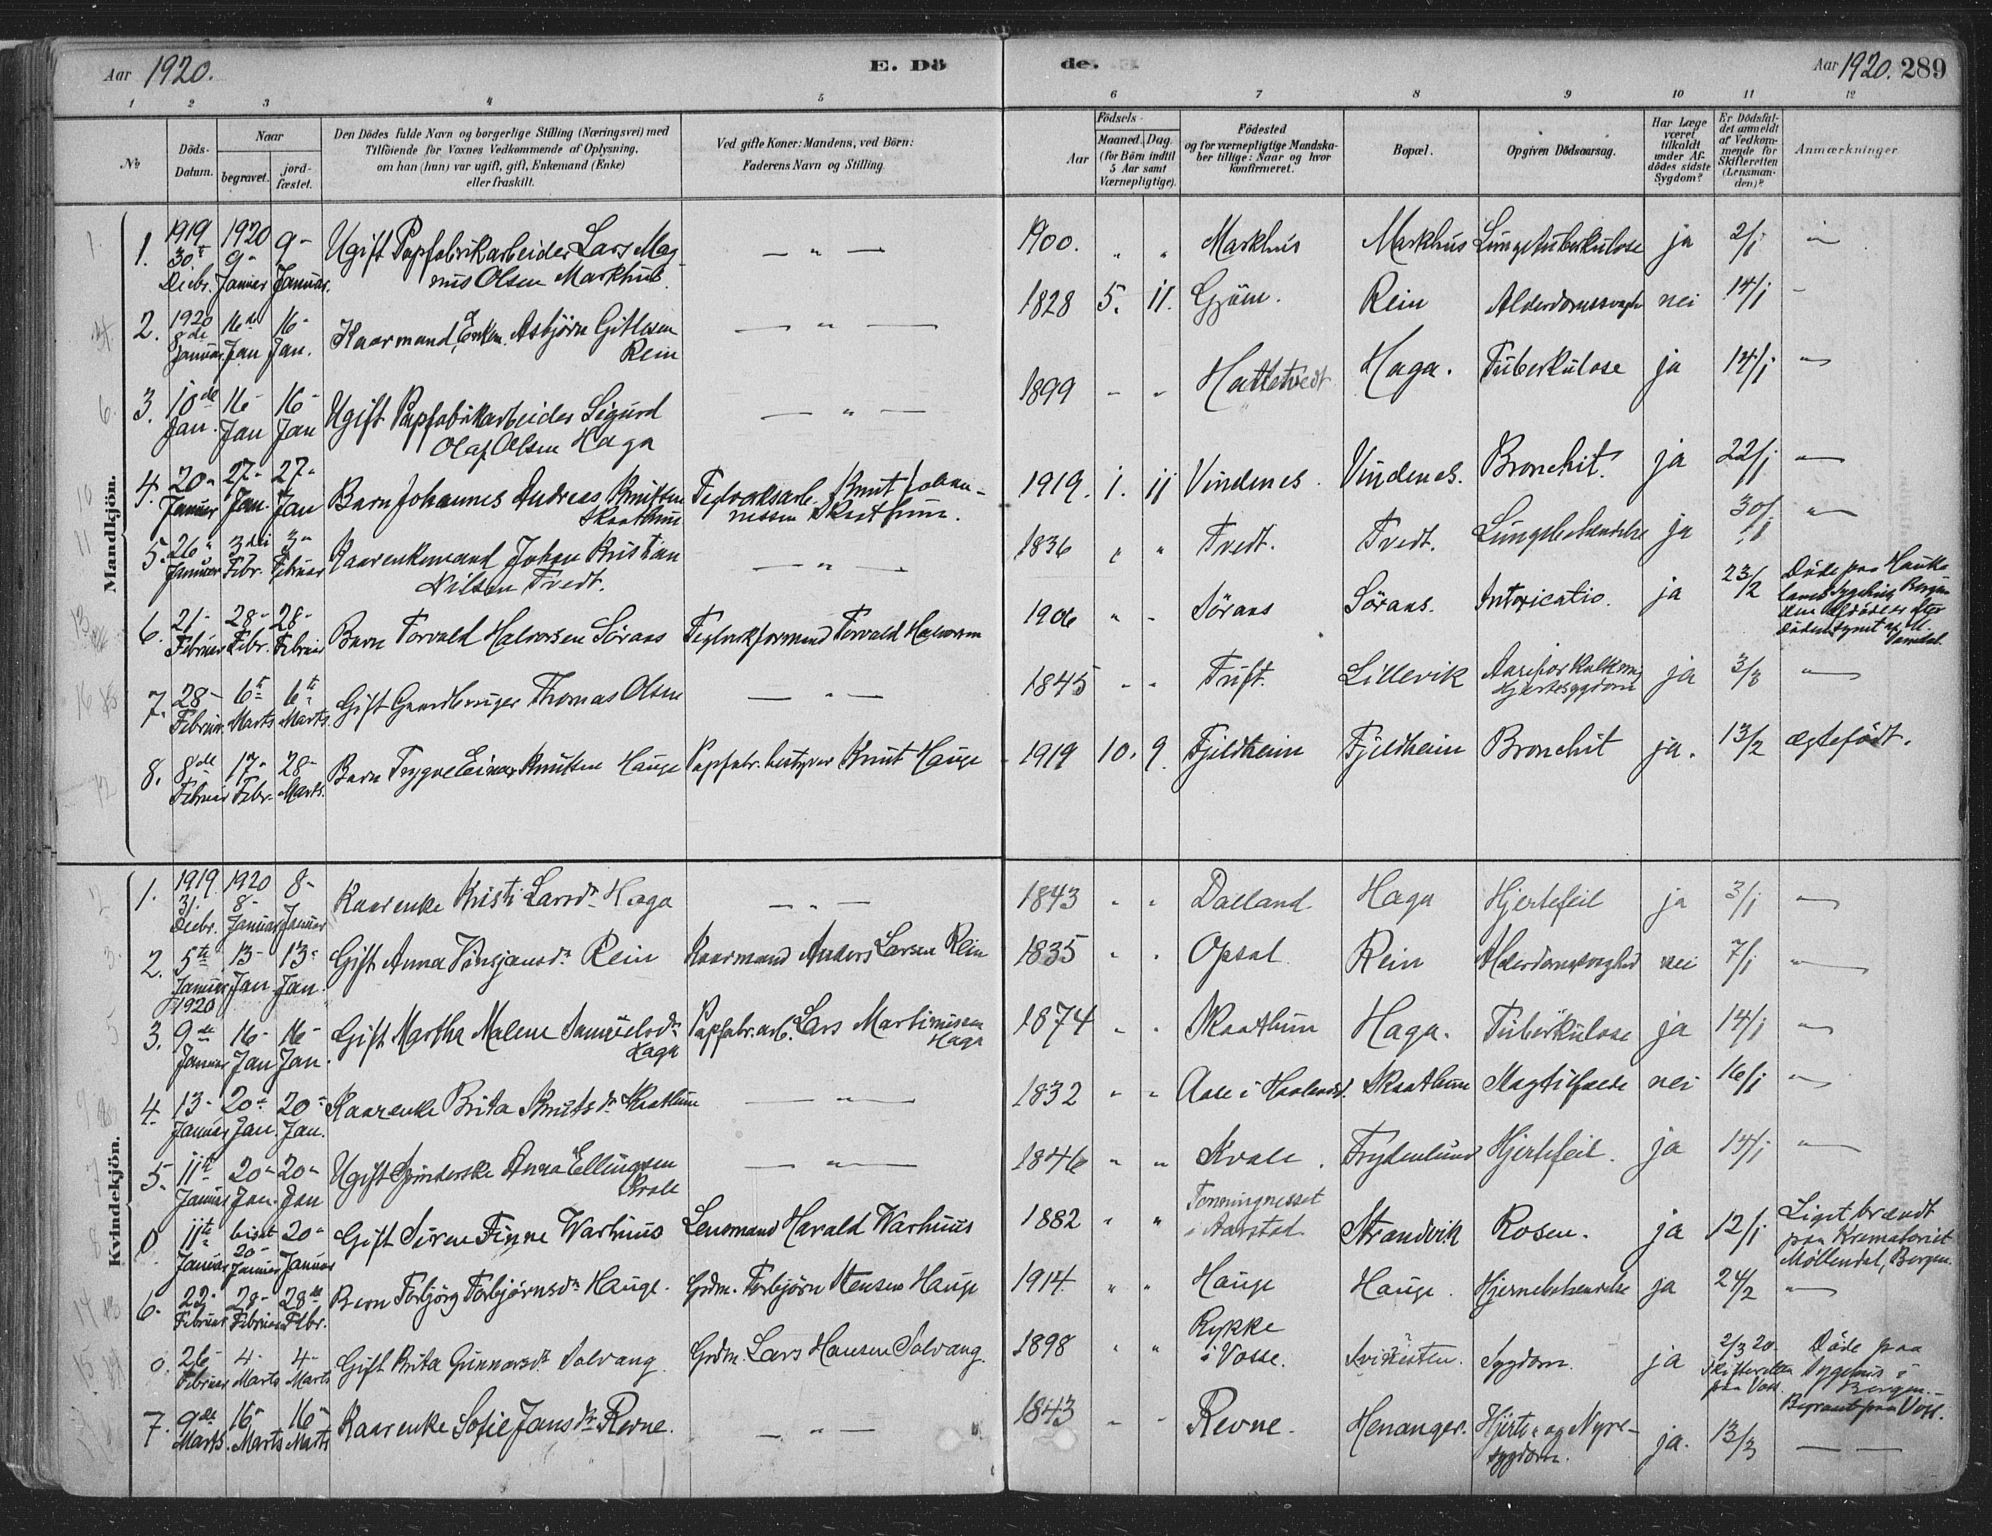 Aar 1920. E. Dö de. Aar 1920. 289
1 2 3 4 5 6 7 8 9 10 11 12
No
Döds-
Datum.
Naar
begravet.
jord-
fæstet.
Den Dödes fulde Navn og borgerlige Stilling (Næringsvei) med
Tilföiende for Voxnes Vedkommende af Oplysning,
om han (hun) var ugift, gift, Enkemand (Enke)
eller fraskilt.
Ved gifte Koner: Mandens, ved Börn:
Faderens Navn og Stilling.
Födsels-
Aar
Maaned.
Dag.
(for Börn indtil
5 Aar samt
Værnepligtige).
Födested
og for værnepligtige Mandska-
ber tillige: Naar og hvor
konfirmeret.
Bopæl.
Opgiven Dödsaarsag.
Har Læge
været
tilkaldt
under Af-
dödes sidste
Sygdom?
Er Dödsfal-
det anmeldt
af Vedkom-
mende for
Skifteretten
(Lensman-
den)?
Anmærkninger.
Mandkjön.
1. 1919 30te Decbr. 1920 9- Januar 9- Januar. Ugift Papfabrikarbeider Lars Mag-
nus Olsen Markhus. — " — 1900. " " Markhus Markhus Lungetuberkulose ja 2/1 "
2. 1920 8de Januar 16de Jan 16- Jan. Kaarmand, Enkem. Asbjörn Gitlesen
Rein — " — 1828 5. 11. Gjöm. Rein Alderdomssvagh nei 14/1 -
3. 10de Jan. 16- Jan 16- Jan Ugift Papfabrikarbeider Sigurd
Olaf Olsen Haga — " — 1899 - - Hattetvedt Haga. Tuberkulose ja 14/1 "
4. 20- Januar 27- Jan. 27- Jan Barn Johannes Andreas Knutsen
Skaathun Teglverksarb. Knut Johan-
nessen Skaathun. 1919. 1. 11 Vindenes. Vindenes. Bronchit. ja 22/1 "
5. 26" Januar 3die Febr. 3" Februar Kaarenkemand Johan Kristian
Nilsen Tvedt. — " — 1836 " " Tvedt. Tvedt. Lungebetændelse ja 30/1 "
6. 21- Februar 28- Febr. 28- Februar Barn Torvald Halvorsen Söraas Teglverkformand Torvald Halvorsen 1906 " - Söraas Söraas. Intoxicatio. ja 23/2 Döde paa Hauke-
land Sygehus Bergen
7. 28- Februar 6te Marts 6te Marts. Gift Gaardbruger Thomas Olsen — " — 1845 - - Tuft. Lillevik Aareforkalkning
Hjertesygdom ja 3/3 "
8. 8de Februar 17- Febr. 28- Marts. Barn Trygve Einar Knutsen Hauge Papfabr. bestyrer Knut Hauge 1919 10. 9. Fjeldheim Fjeldheim Bronchit ja. 13/2 ægtefödt.
Kvindekjön.
1. 1919 31. Decbr. 1920 8- Januar 8- Januar Kaarenke Kristi Larsdr Haga — " — 1843 " " Dalland. Haga Hjertefeil ja 3/1 "
2. 5te Januar 1920 13- Jan 13- Jan. Gift Anna Vinsjansdr Rein Kaarmand Anders Larsen Rein 1835 " " Opsal. Rein Alderdomssvaghed nei 7/1 "
3. 9de Januar 16- Jan 16- Jan. Gift Martha Malene Samuelsdr
Haga Papfabr. arb. Lars Martinussen
Haga 1874 - - Skaathun Haga. Tuberkulose ja 14/1 "
4. 13- Januar 20- Jan. 20- Jan. Kaarenke Brita Knutsdr Skaathun — " — 1832 " " Aase i Skaathun Magtilfælde nei 16/1 "
5. 11te Januar 20- Jan. 20- Jan Ugift Spinderske Anna Ellingsen
Kvale — " — 1846 " " Kvale. Frydenlund Hjertefeil. ja 14/1 "
0. 11te Januar bisat 20- Januar 20- Januar Gift Siren Finne Warhuus Lensmand Harald Warhuus 1882 " " Tonningnesset
i Aarstad. Strandvik Rosen. ja 12/1 Liget brændt
paa Krematoriet
Möllendal, Bergen.
6. 22- Februar 28- Februar 28de Febr. Barn Torbjörg Torbjörnsdr Hauge. Grdm. Torbjörn Stensen Hauge 1914. " " Hauge Hauge. Hjernebetændelse ja 24/2 "
0. 26- Februar 4- Marts 4- Marts Gift Brita Gunnarsdr Solvang Grdm. Lars Hansen Solvang. 1898 " " Rykke
i Vosse. Kvikesten. Sygdom. ja 2/3 20-
Skifteretten
paa Voss. Döde paa
Sygehus i
Bergen.-
Begravet paa Voss.
7. 9de Marts. 16- Marts 16- Marts Kaarenke Sofie Jansdr Revne. — " — 1843 - - Revne. Henanger. Hjerte- og Nyre-
sygdom. ja. 13/3 — —